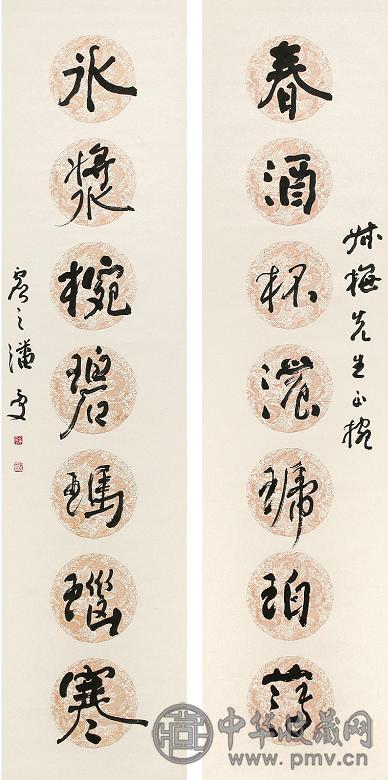 梅先生正
春酒杯濃琥珀薄
冰漿椀碧瑪瑙寒
虛之潘受
中华收藏网
www.pmv.cn